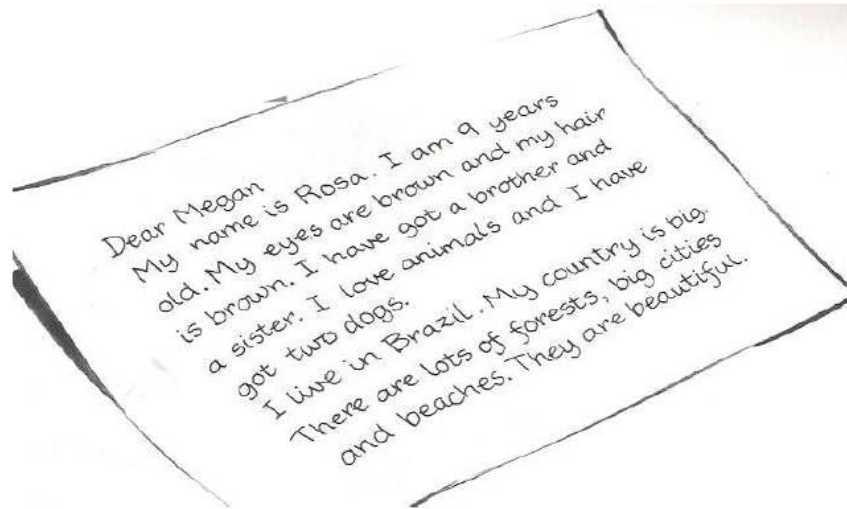 Dear Megan
My name is Rosa. I am 9 years
old. My eyes are brown and my hair
is brown. I have got a brother and
a sister. I love animals and I have
got two dogs.
I live in Brazil. My country is big.
There are lots of forests, big cities
and beaches. They are beautiful.